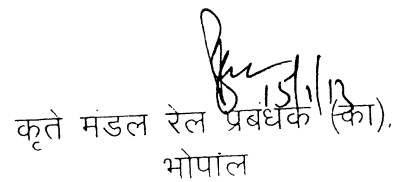 15/1/13
कृते मंडल रेल प्रबंधक (का).
भोपाल